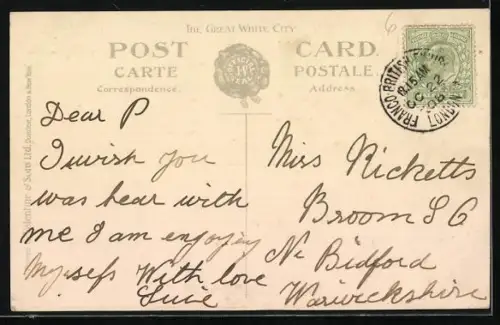 The Great White City
POST CARD
CARTE POSTALE
Correspondence. Address.
FRANCO-BRITISH
8.15 AM
OC 22
08
LONDON
6
Dear P
I wish you
was hear with
me I am enjoying
Myself With love
Miss Ricketts
Broom
Nr Bidford
Warwickshire